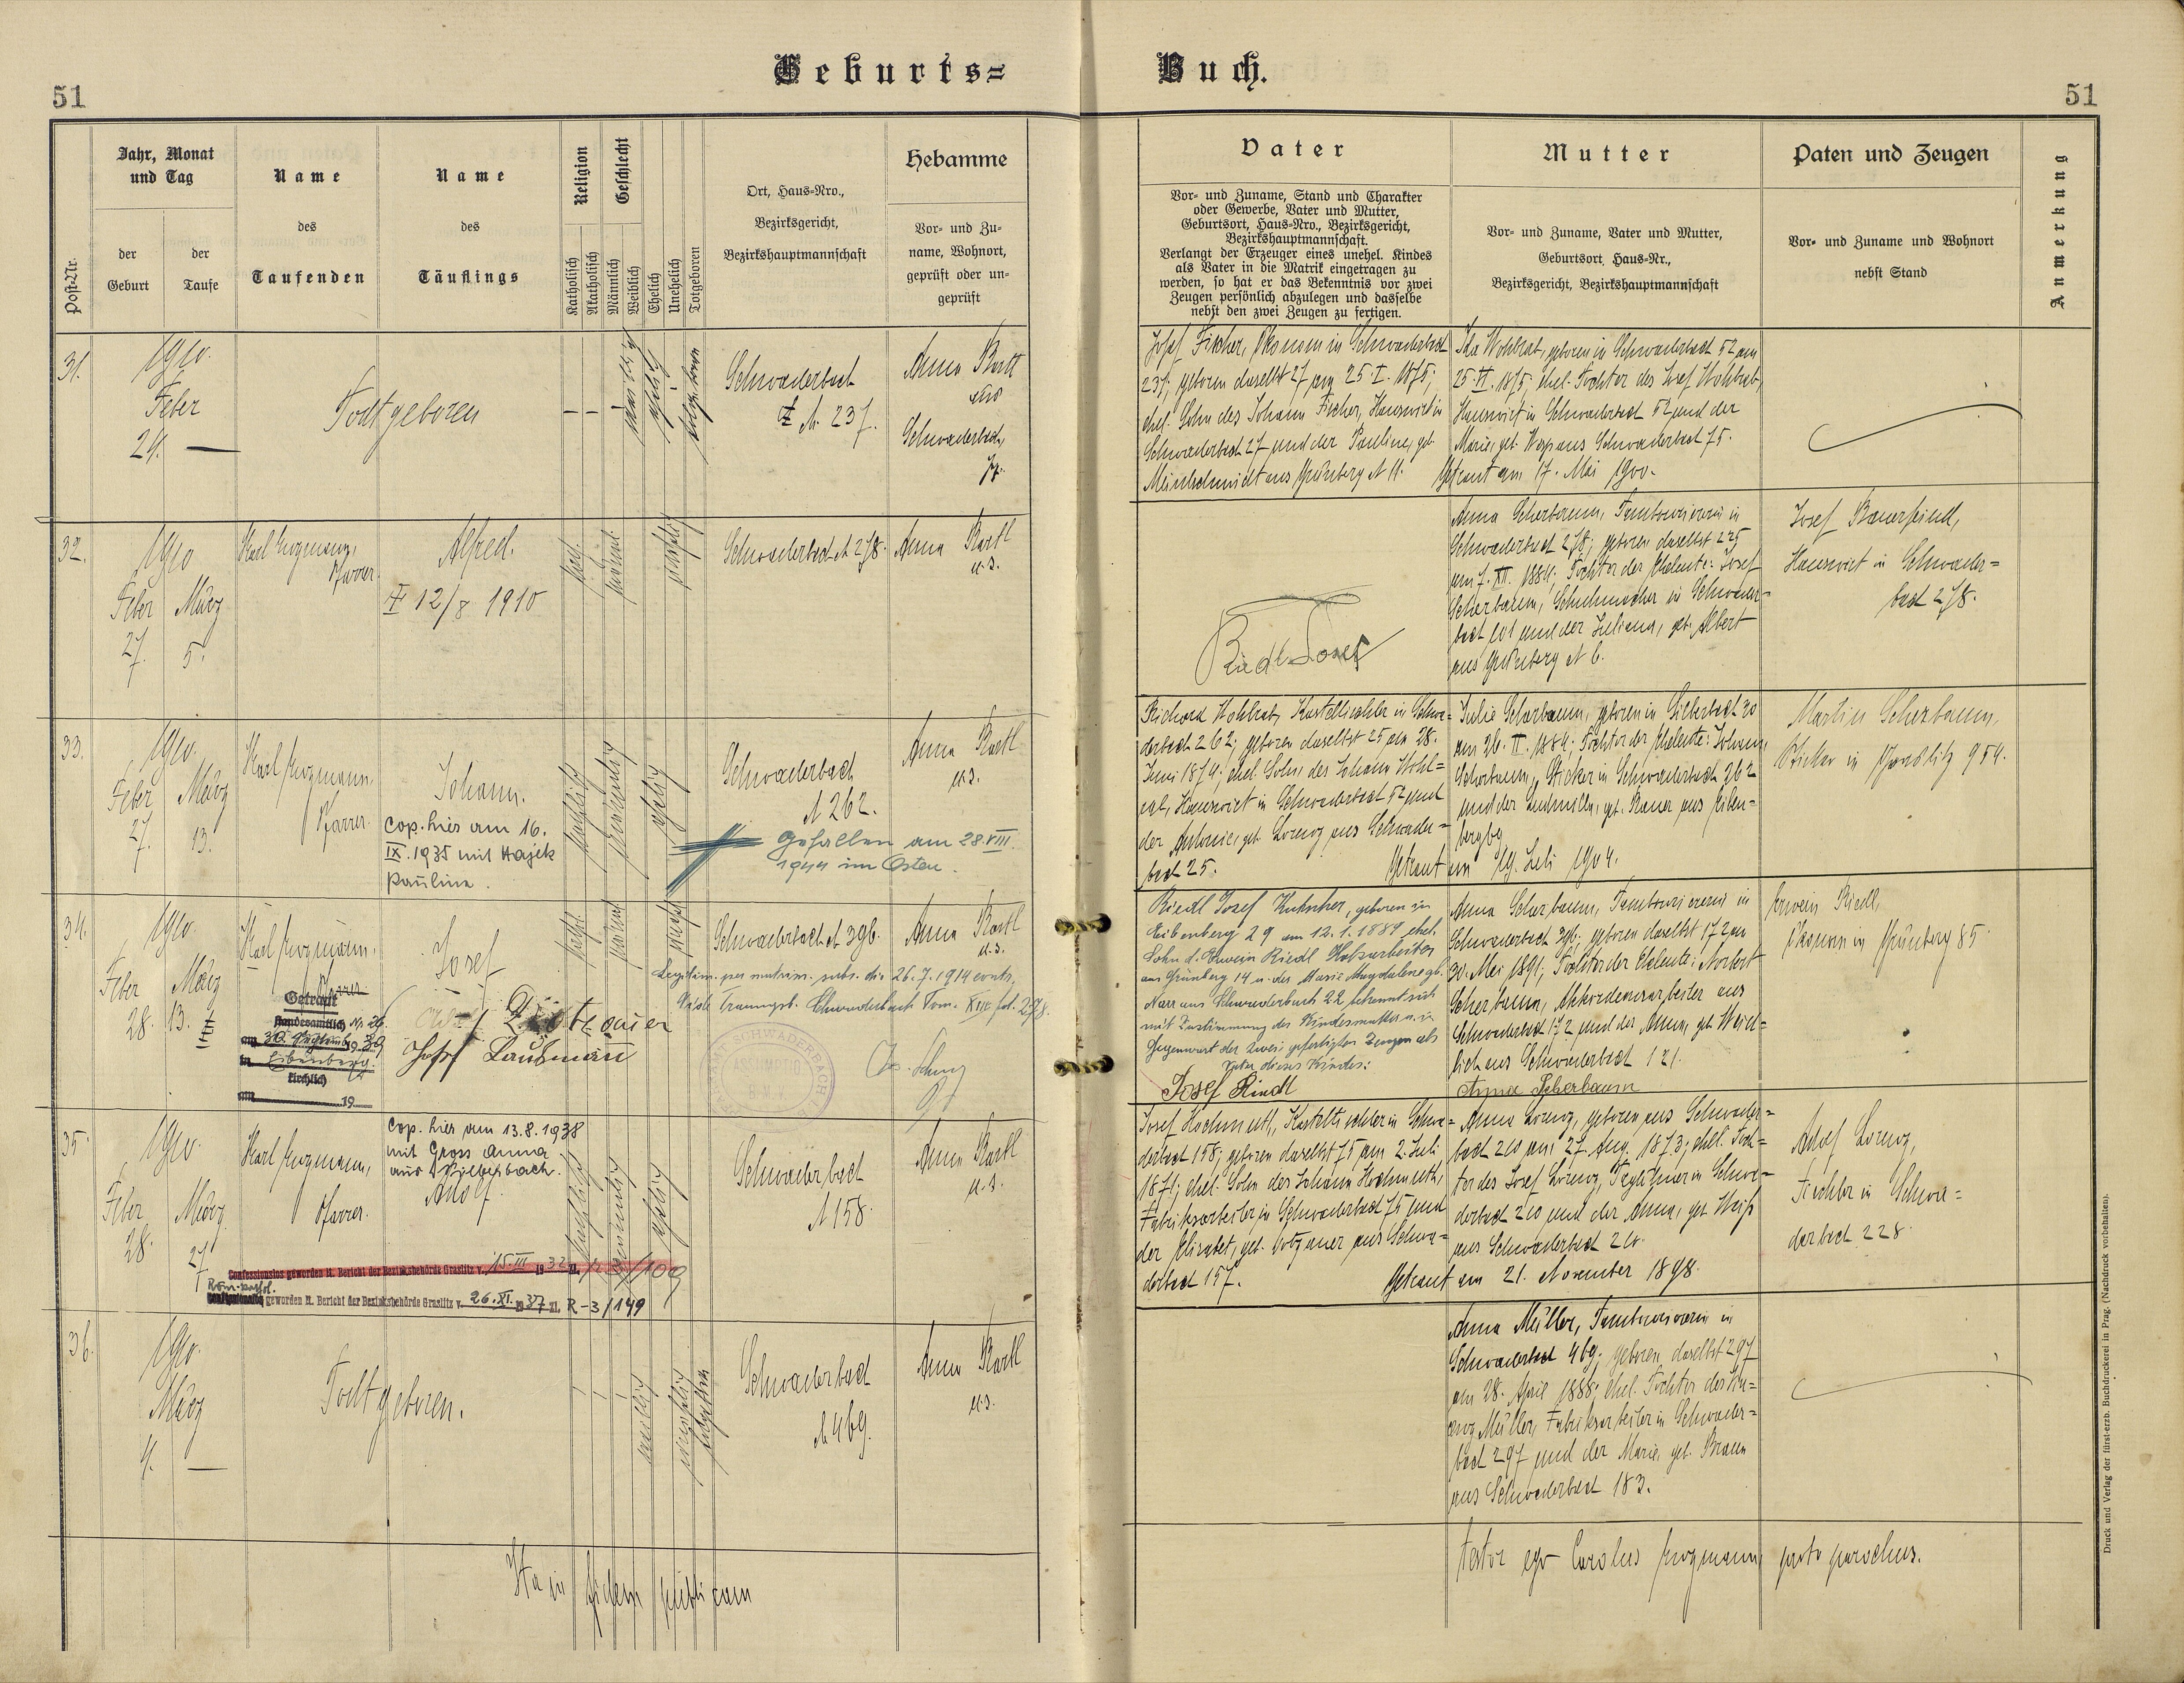 Geburts=
Buch.
51
51
Post-Nr.
Jahr, Monat
und Tag
der
Geburt
der
Taufe
Name
des
Taufenden
Name
des
Täuflings
Religion
Katholisch
Akatholisch
Geschlecht
Männlich
Weiblich
Ehelich
Unehelich
Totgeboren
Ort, Haus-Nro.,
Bezirksgericht,
Bezirkshauptmannschaft
Hebamme
Vor- und Zu-
name, Wohnort,
geprüft oder un-
geprüft
Vater
Vor- und Zuname, Stand und Charakter
oder Gewerbe, Vater und Mutter,
Geburtsort, Haus-Nro., Bezirksgericht,
Bezirkshauptmannschaft.
Verlangt der Erzeuger eines unehel. Kindes
als Vater in die Matrik eingetragen zu
werden, so hat er das Bekenntnis vor zwei
Zeugen persönlich abzulegen und dasselbe
nebst den zwei Zeugen zu fertigen.
Mutter
Vor- und Zuname, Vater und Mutter,
Geburtsort, Haus-Nr.,
Bezirksgericht, Bezirkshauptmannschaft
Paten und Zeugen
Vor- und Zuname und Wohnort
nebst Stand
Anmerkung
31.
1910.
Feber
24. —
Todtgeboren
Schwaderbach
N. 237.
Anna Bartl
Schwaderbach
Josef Fischer, Ökonom in Schwaderbach
237; geboren daselbst 27 am 25. I. 1875;
ehel. Sohn des Johann Fischer, Hauswirt in
Schwaderbach 27 und der Pauline, geb.
Meindlschmidt aus Grünberg N 11.
Ida Wohlrab, geboren in Schwaderbach 52 am
25. VI. 1875; ehel. Tochter des Josef Wohlrab,
Hauswirt in Schwaderbach 52 und der
Marie, geb. aus Schwaderbach 75.
Getraut am 17. Mai 1900.
32.
1910
Feber
27.
März
5.
Karl Pfarrer.
Alfred.
† 12/8 1910
Schwaderbach N 278.
Anna Bartl
u.s.
Riedl Josef
Anna Scherbaum, Tambouriererin in
Schwaderbach 278; geboren daselbst 225
am 7. XII. 1884; Tochter der Eheleute: Josef
Scherbaum, Schuhmacher in Schwader-
bach 101 und der Juliana, geb. Albert
aus Grünberg N 6.
Josef Bauerfeind,
Hauswirt in Schwader=
bach 278.
33.
1910.
Feber
27.
März
13.
Karl
Pfarrer.
Johann.
cop. hier am 16.
IX. 1935 mit Hajek
Paulina.
Schwaderbach
N 262.
Gefallen am 28. VIII.
1944 im Osten.
Anna Bartl
u.s.
Richard Wohlrab, in Schwa=
derbach 262; geboren daselbst 25 am 28.
Juni 1879; ehel. Sohn des Johann Wohl=
rab, Hauswirt in Schwaderbach 52 und
der Antonie, geb. Lorenz aus Schwader=
bach 25.
Julie Scherbaum, geboren in Silberbach 30
am 26. II. 1884; Tochter der Eheleute: Johann
Scherbaum, Sticker in Schwaderbach 262
und der Ludmilla, geb. Bauer aus Eiben=
berg
Getraut am 19. Juli 1904.
Martin Scherbaum,
Sticker in Graslitz 954.
34.
1910.
Feber
28.
März
13.
III
Karl
Pfarrer
Getraut
standesamtlich Nr. 26
am 30. 19 39
in Eibenberg.
kirchlich
am 19
Josef
Josef Laubmann
Schwaderbach N 396.
Anna Bartl
u.s.
Legitim. per matrim. subs. die 26.7.1914 contr.
Schwaderbach Tom. XIII fol. 278.
Riedl Josef Kutscher, geboren in
Eibenberg 29 am 12.1.1889 ehel.
Sohn d. Erwein Riedl Holzarbeiter
aus Grünberg 14 u. der Marie Magdalene gb.
Narr aus Schwaderbach 22 bekennt sich
mit Zustimmung der Kindesmutter u. in
Gegenwart der zwei gefertigten Zeugen als
Vater dieses Kindes:
Josef Riedl
Anna Scherbaum, Tambouriererin in
Schwaderbach 396; geboren daselbst 172 am
30. Mai 1891; Tochter der Eheleute: Norbert
Scherbaum, Akkordeonarbeiter aus
Schwaderbach 172 und der Anna, geb.
aus Schwaderbach 121.
Anna Scherbaum
Erwein Riedl,
in Grünberg 85.
35.
1910.
Feber
28.
März
27.
Karl
Pfarrer.
Cop. hier am 13.8.1938
mit Gross Anna
aus Silberbach.
Adolf.
Schwaderbach
N 158.
Anna Bartl
u.s.
Confessionslos geworden lt. Bericht der Bezirksbehörde Graslitz v. 15. III 1932
Röm.-kathol.
geworden lt. Bericht der Bezirksbehörde Graslitz v. 26. XI. 1937 Zl. R-3/149
Josef Hochmuth, in Schwa=
derbach 158; geboren daselbst 75 am 2. Juli
1871; ehel. Sohn des Johann Hochmuth,
Fabriksarbeiter in Schwaderbach 75 und
der Elisabet, geb. aus Schwa=
derbach 157.
Anna Lorenz, geboren aus Schwader=
bach 210 am 27. Aug. 1873; ehel. Toch=
ter des Josef Lorenz, Taglöhner in Schwa=
derbach 210 und der Anna, geb. Weiß
aus Schwaderbach 20.
Getraut am 21. November 1898.
Adolf Lorenz,
Tischler in Schwa=
derbach 228.
36.
1910.
März
4. —
Todtgeboren.
Schwaderbach
N 469.
Anna Bartl
u.s.
Anna Müller, Tambouriererin in
Schwaderbach 469; geboren daselbst 297
am 28. April 1888; ehel. Tochter des
Müller, Fabriksarbeiter in Schwader=
bach 297 und der Marie, geb. Braun
aus Schwaderbach 183.
Ita in fidem publicam
testor ego Carolus parochus.
Druck und Verlag der fürst-erzb. Buchdruckerei in Prag. (Nachdruck vorbehalten).